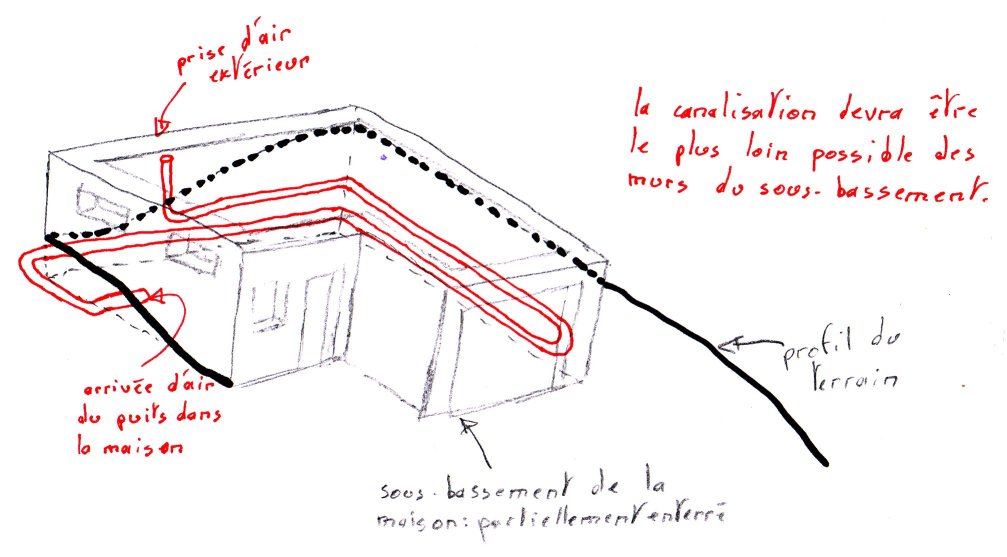 prise d'air
extérieur
la canalisation devra être
le plus loin possible des
murs du sous-bassement.
profil du
terrain
arrivée d'air
du puits dans
la maison
sous-bassement de la
maison: partiellement enterré